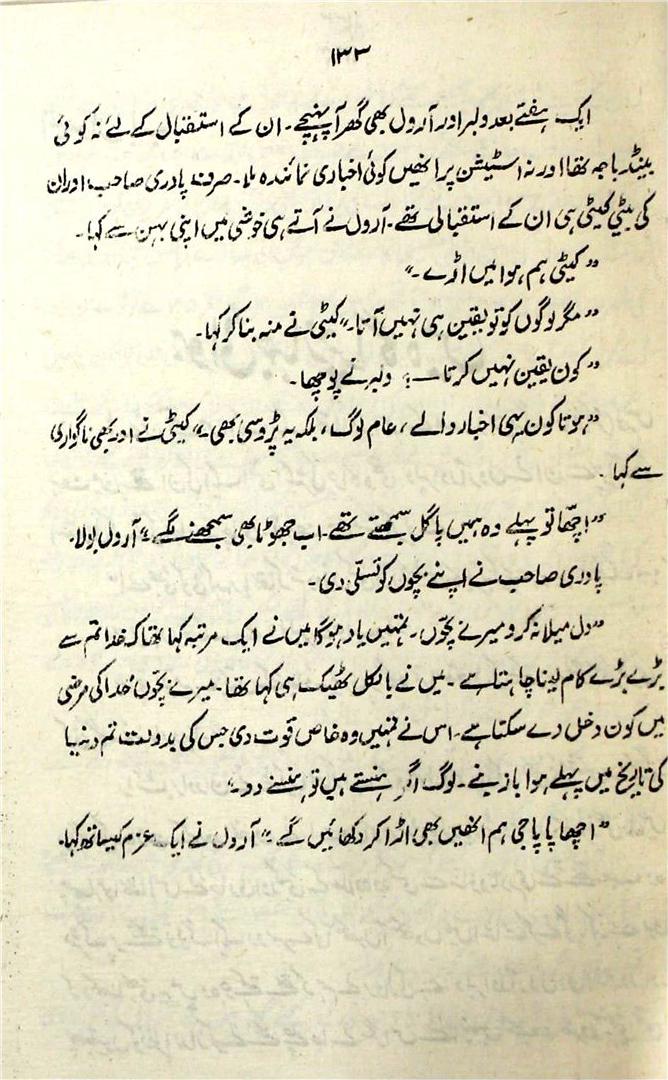 ۱۳۳
ایک ہفتے بعد ولبر اور آرول بھی گھر آ پہنچے۔ ان کے استقبال کے لئے نہ کوئی
بینڈ باجہ تھا اور نہ اسٹیشن پر انھیں کوئی اخباری نمائندہ ملا۔ صرف پادری صاحب اور ان
کی بیٹی کیٹی ہی ان کے استقبالی تھے۔ آرول نے آتے ہی خوشی میں اپنی بہن سے کہا۔
"کیٹی ہم ہوا میں اڑے۔"
"مگر لوگوں کو تو یقین ہی نہیں آتا۔" کیٹی نے منہ بنا کر کہا۔
"کون یقین نہیں کرتا—؟ ولبر نے پوچھا۔
"ہوتا کون یہی اخبار والے، عام لوگ، بلکہ یہ پڑوسی بھی۔" کیٹی نے اور بھی ناگواری
سے کہا۔
"اچھا تو پہلے وہ ہمیں پاگل سمجھتے تھے۔ اب جھوٹا بھی سمجھنے لگے۔" آرول بولا۔
پادری صاحب نے اپنے بچوں کو تسلّی دی۔
"دل میلا نہ کرو میرے بچّوں۔ تمہیں یاد ہوگا میں نے ایک مرتبہ کہا تھا کہ خدا تم سے
بڑے بڑے کام لینا چاہتا ہے۔ میں نے بالکل ٹھیک ہی کہا تھا۔ میرے بچّوں خدا کی مرضی
میں کون دخل دے سکتا ہے۔ اس نے تمہیں وہ خاص قوت دی جس کی بدولت تم دنیا
کی تاریخ میں پہلے ہوا باز بنے۔ لوگ اگر ہنستے ہیں تو ہنسنے دو۔"
"اچھا پاپا جی ہم انھیں بھی اڑا کر دکھائیں گے۔" آرول نے ایک عزم کیساتھ کہا۔